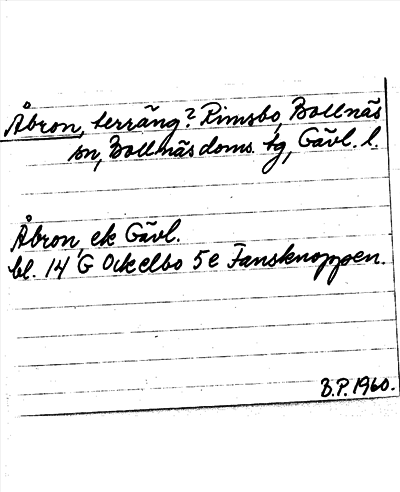 Åbron, terräng? Rimsbo, Bollnäs
sn, Bollnäs doms. tg, Gävl. l.
Åbron, ek Gävl.
bl. 14 G Ockelbo 5 e Fansknoppen.
B.P. 1960.